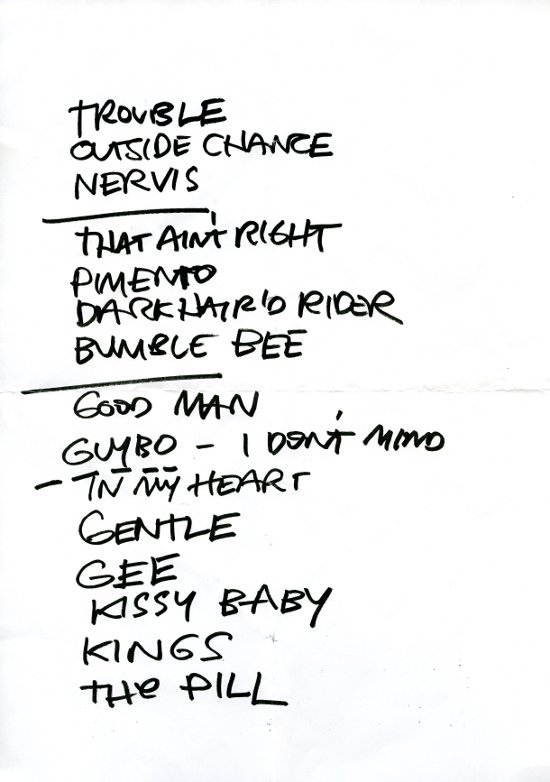 TROUBLE
OUTSIDE CHANCE
NERVIS
THAT AIN'T RIGHT
PIMENTO
DARKHAIR'D RIDER
BUMBLE BEE
GOOD MAN
GUYBO - I DON'T MIND
- IN MY HEART
GENTLE
GEE
KISSY BABY
KINGS
THE PILL